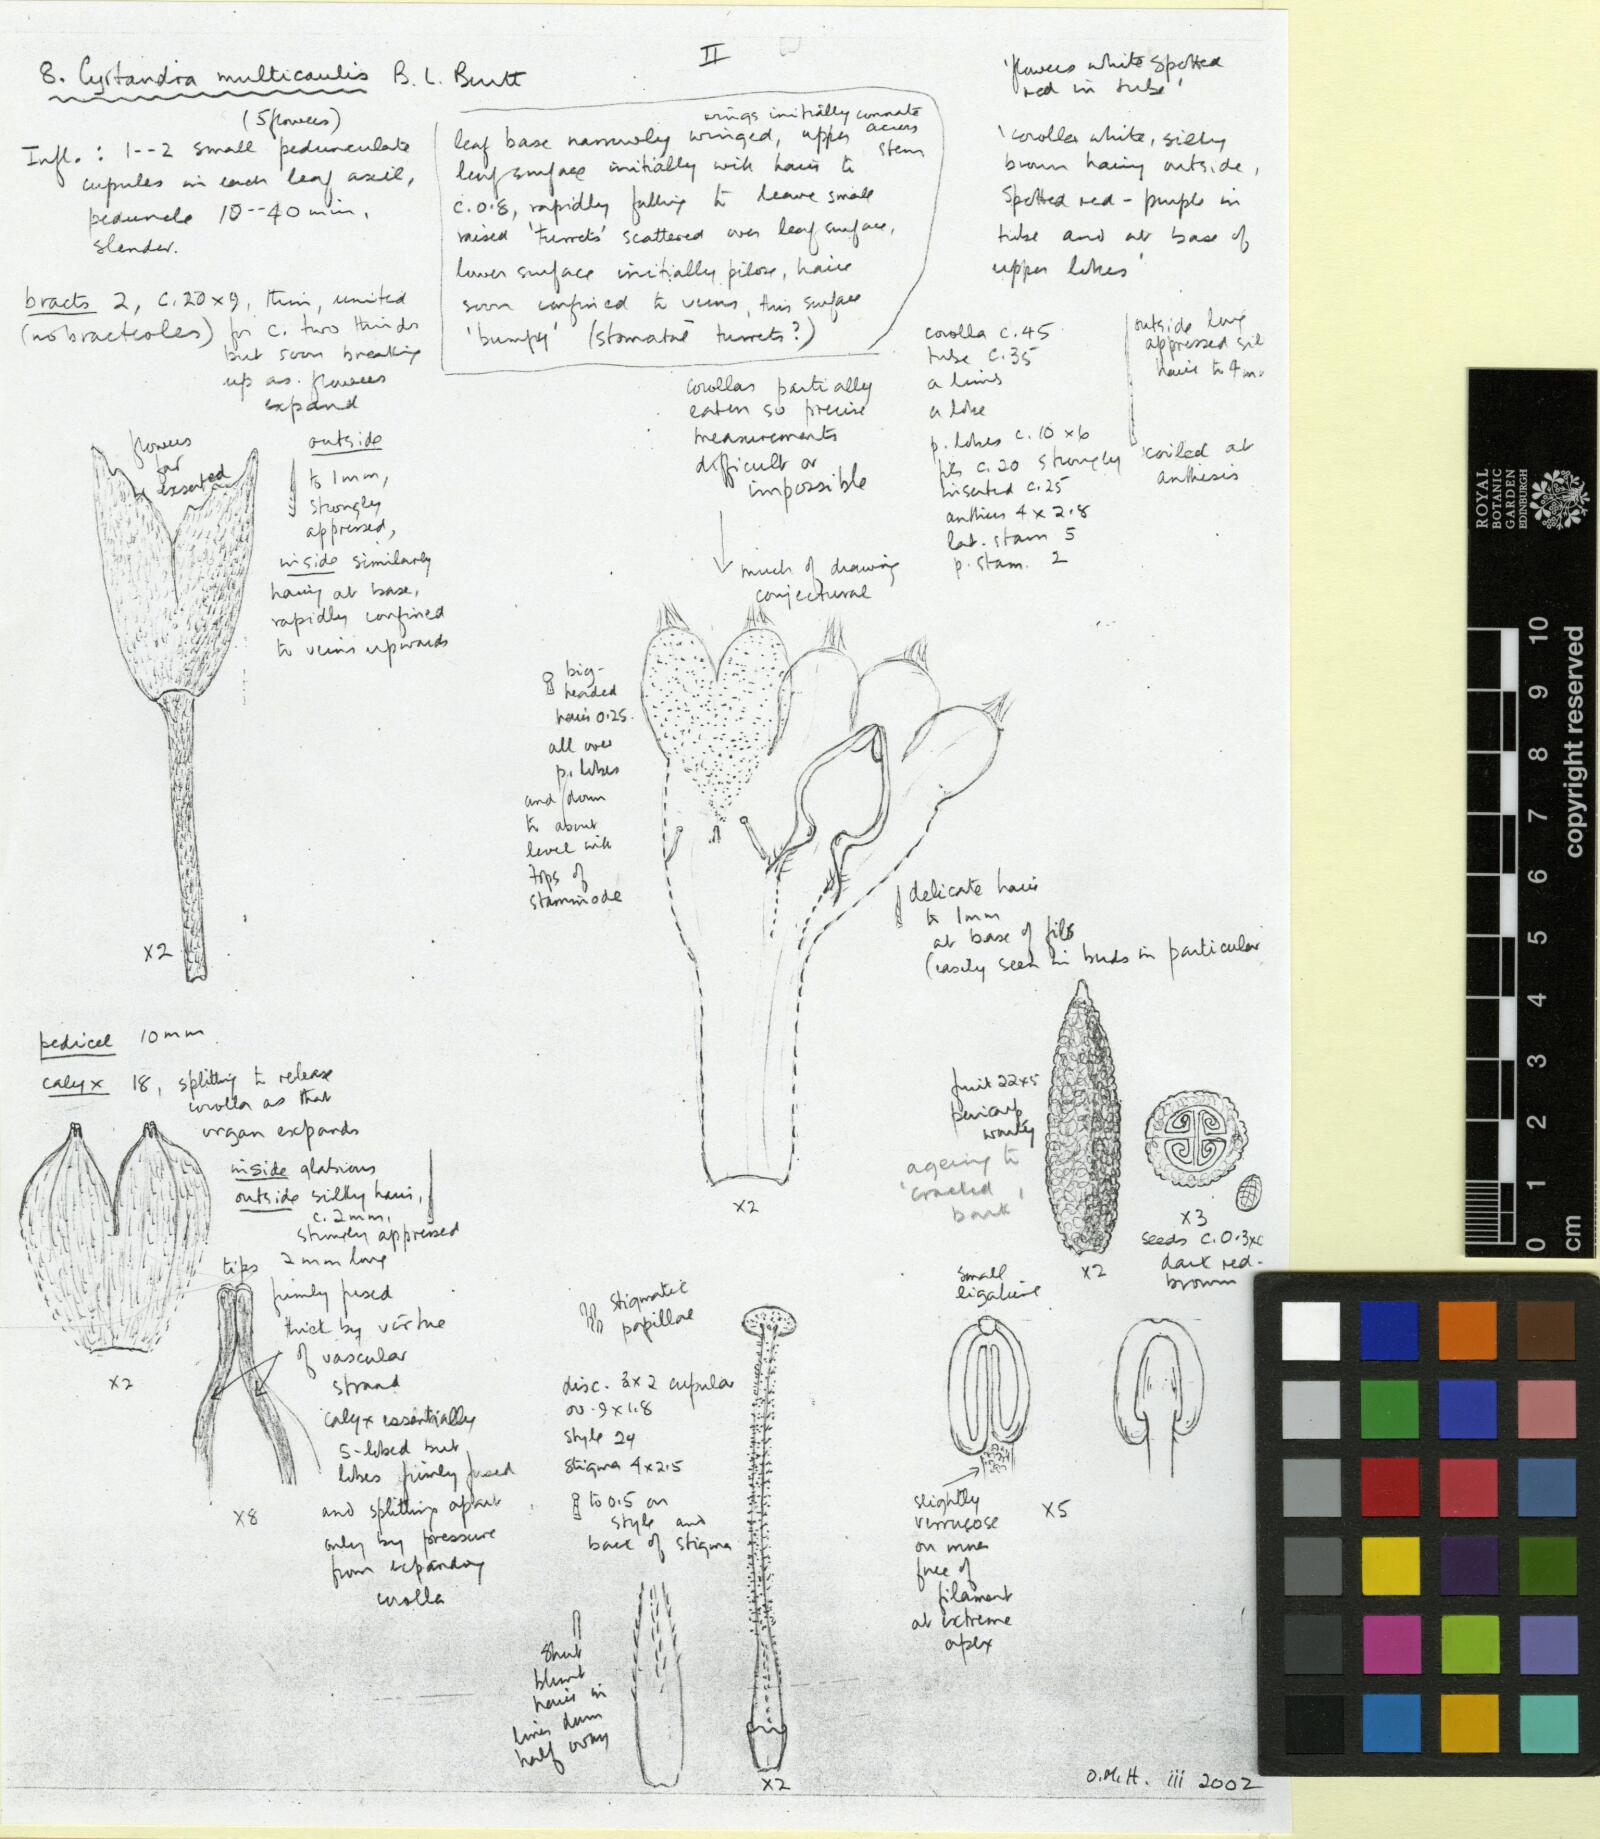 II
8. Cyrtandra multicaulis B. L. Burtt
(5 flowers)
Infl. : 1--2 small pedunculate
cupules in each leaf axil,
peduncle 10--40 mm,
slender.
bracts 2, c. 20 x 9, thin, united
(no bracteoles) for c. two thirds
but soon breaking
up as flowers
expand
wings initially connate
across
stem
leaf base narrowly winged, upper
leaf surface initially with hairs to
c. 0.8, rapidly falling to leave small
raised 'turrets' scattered over leaf surface,
lower surface initially pilose, hairs
soon confined to veins, this surface
'bumpy' (stomatal turrets?)
'flowers white spotted
red in tube'
'corolla white, silky
brown hairy outside,
spotted red-purple in
tube and at base of
upper lobes'
corolla c. 45
tube c. 35
a limb
a lobe
p. lobes c. 10 x 6
fils c. 20 strongly
inserted c. 25
anthers 4 x 2.8
lat. stam 5
p. stam. 2
outside long
appressed
hairs to 4
coiled at
anthesis
corollas partially
eaten so precise
measurements
difficult or
impossible
much of drawing
conjectural
flowers
far
exserted
outside
to 1mm,
strongly
appressed,
inside similarly
hairy at base,
rapidly confined
to veins upwards
x2
big-
headed
hairs 0.25
all over
p. lobes
and down
to about
level with
tops of
staminode
delicate hairs
to 1mm
at base of fils
(easily seen in buds in particular
x2
pedicel 10mm
calyx 18, splitting to release
corolla as that
organ expands
inside glabrous
outside silky hairs,
c. 2mm,
strongly appressed
tips 2mm long
firmly fused
thick by virtue
of vascular
strand
calyx essentially
5-lobed but
lobes firmly fused
and splitting apart
only by pressure
from expanding
corolla
x2
x8
fruit 22x5
pericarp
warty
ageing to
'cracked
bark'
x2
x3
seeds c. 0.3x
dark red-
brown
stigmatic
papillae
disc. 3x2 cupular
ov. 9x1.8
style 24
stigma 4x2.5
to 0.5 on
style and
back of stigma
short
blunt
hairs in
lines down
half ovary
x2
small
ligature
slightly
verrucose
on inner
face of
filament
at extreme
apex
x5
O.M.H. iii 2002
ROYAL
BOTANIC
GARDEN
EDINBURGH
copyright reserved
10
9
8
7
6
5
4
3
2
1
0
cm